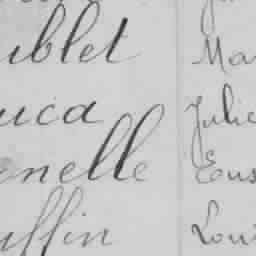 ublet Mar
uca Julie
enelle Eus
uffin Loui